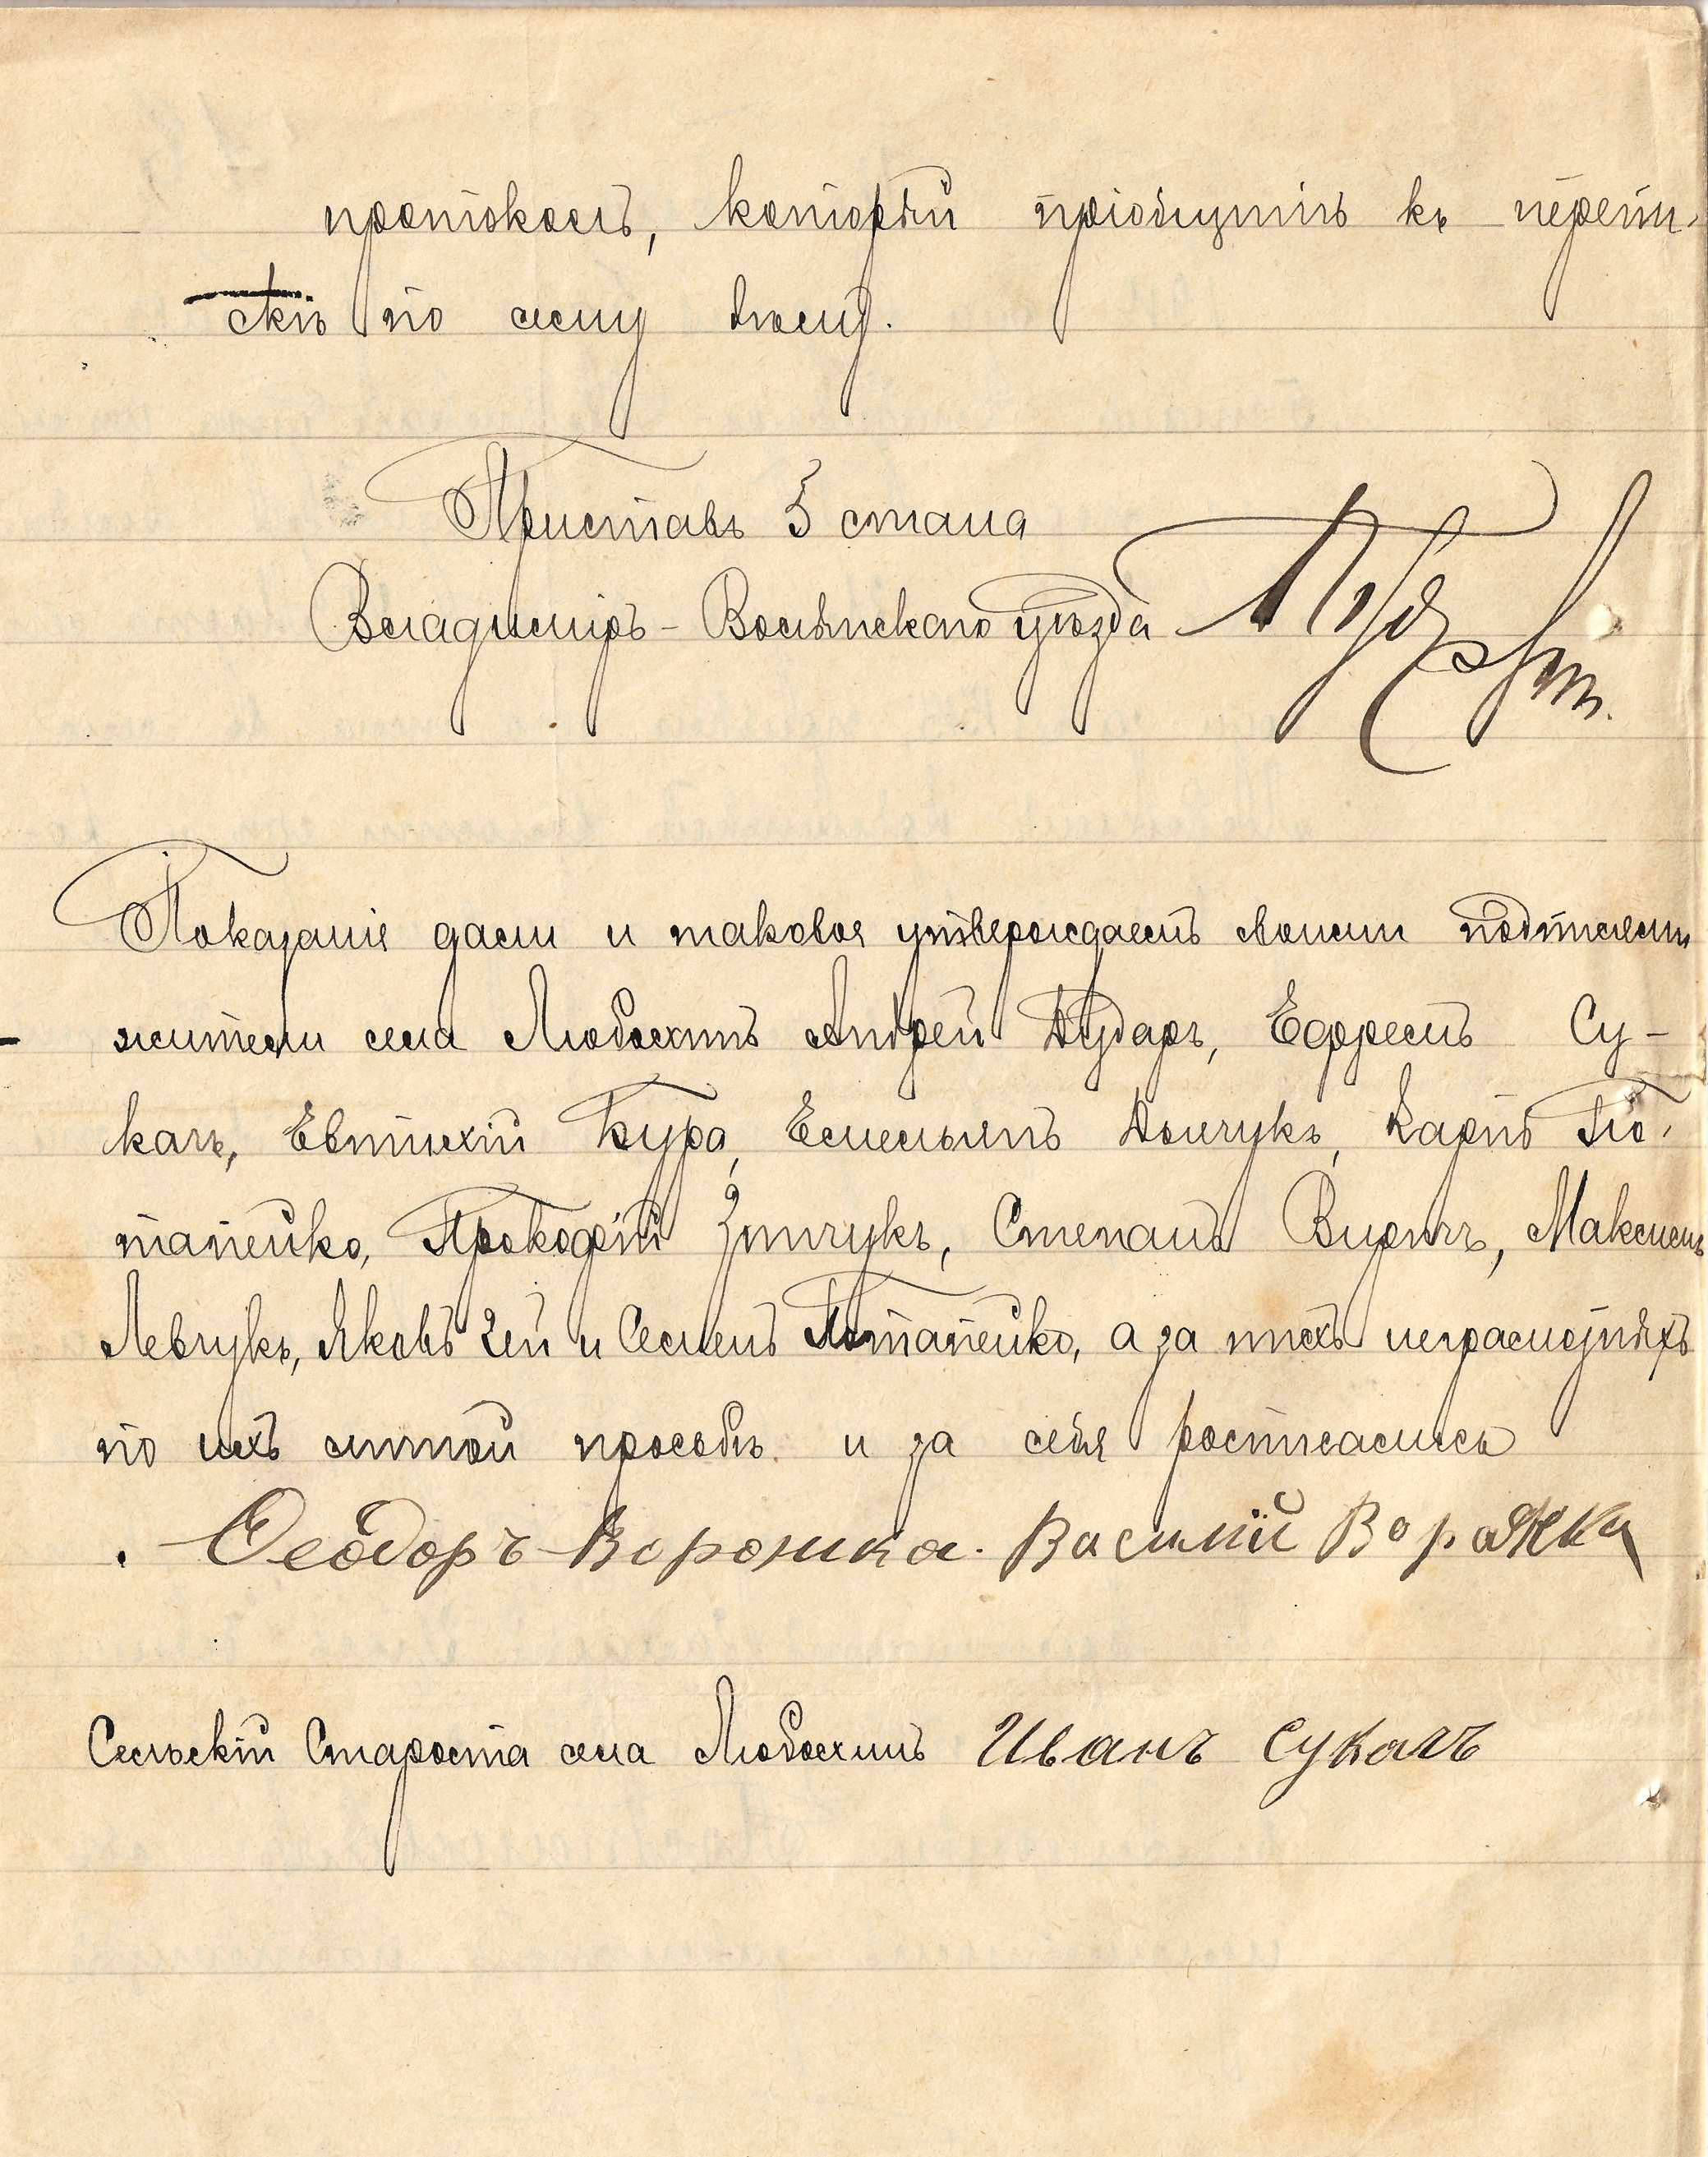 протоколъ, который пріобщить къ перепи-
скѣ по сему дѣлу.
Приставъ 5 стана
Владиміръ-Волынскаго уѣзда
Показаніе дали и таковое утверждаемъ своими подписями
жители села Любохинъ Андрей Дударъ, Ефремъ Су-
качъ, Евтихій Кура, Емельянъ Демчукъ, Карпъ По-
тапейко, Прокофій Зинчукъ, Степанъ Виричъ, Максимъ
Левчукъ, Яковъ Чей и Семенъ Потапейко, а за нихъ неграмотныхъ
по ихъ личной просьбѣ и за себя росписались
Феодоръ Ворожка. Василій Воражка
Сельскій Староста села Любохинъ Иванъ Сукачъ